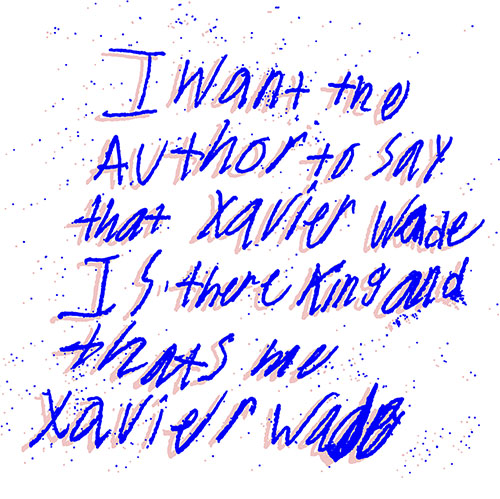 I Want the
AUthor to say
that Xavier Wade
IS there King and
thats me
Xavier Wade